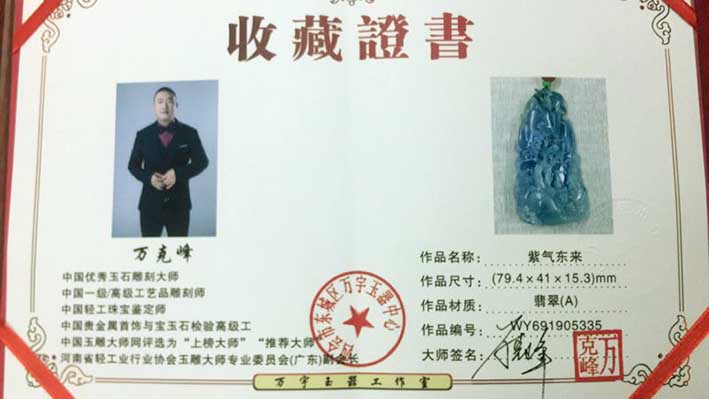 收藏證書
万克峰
中国优秀玉石雕刻大师
中国一级/高级工艺品雕刻师
中国轻工珠宝鉴定师
中国贵金属首饰与宝玉石检验高级工
中国玉雕大师网评选为“上榜大师”“推荐大师”
河南省轻工业行业协会玉雕大师专业委员会(广东)副会长
作品名称：紫气东来
作品尺寸：(79.4×41×15.3)mm
作品材质：翡翠(A)
作品编号：WY691905335
大师签名：
万克峰
会市东城区万宇玉器中心
万宇玉器工作室